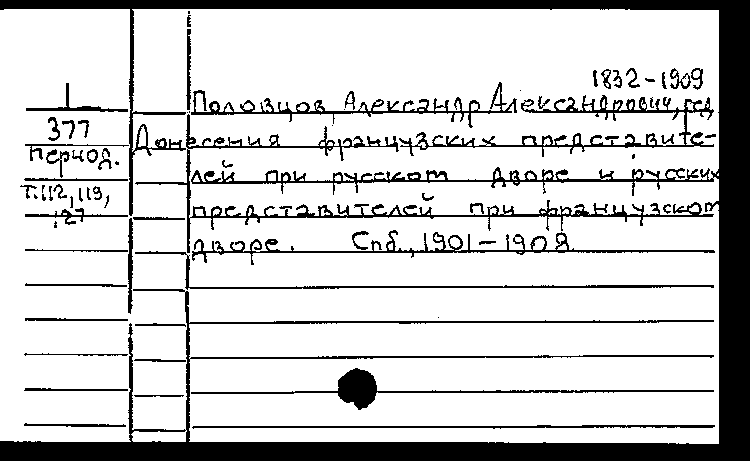 1832-1909
I
Половцов Александр Александрович, ред
377
Донесения французских представите-
период.
лей при русском дворе и русских
Т.112, 119,
127
представителей при французском
дворе. Спб., 1901-1908